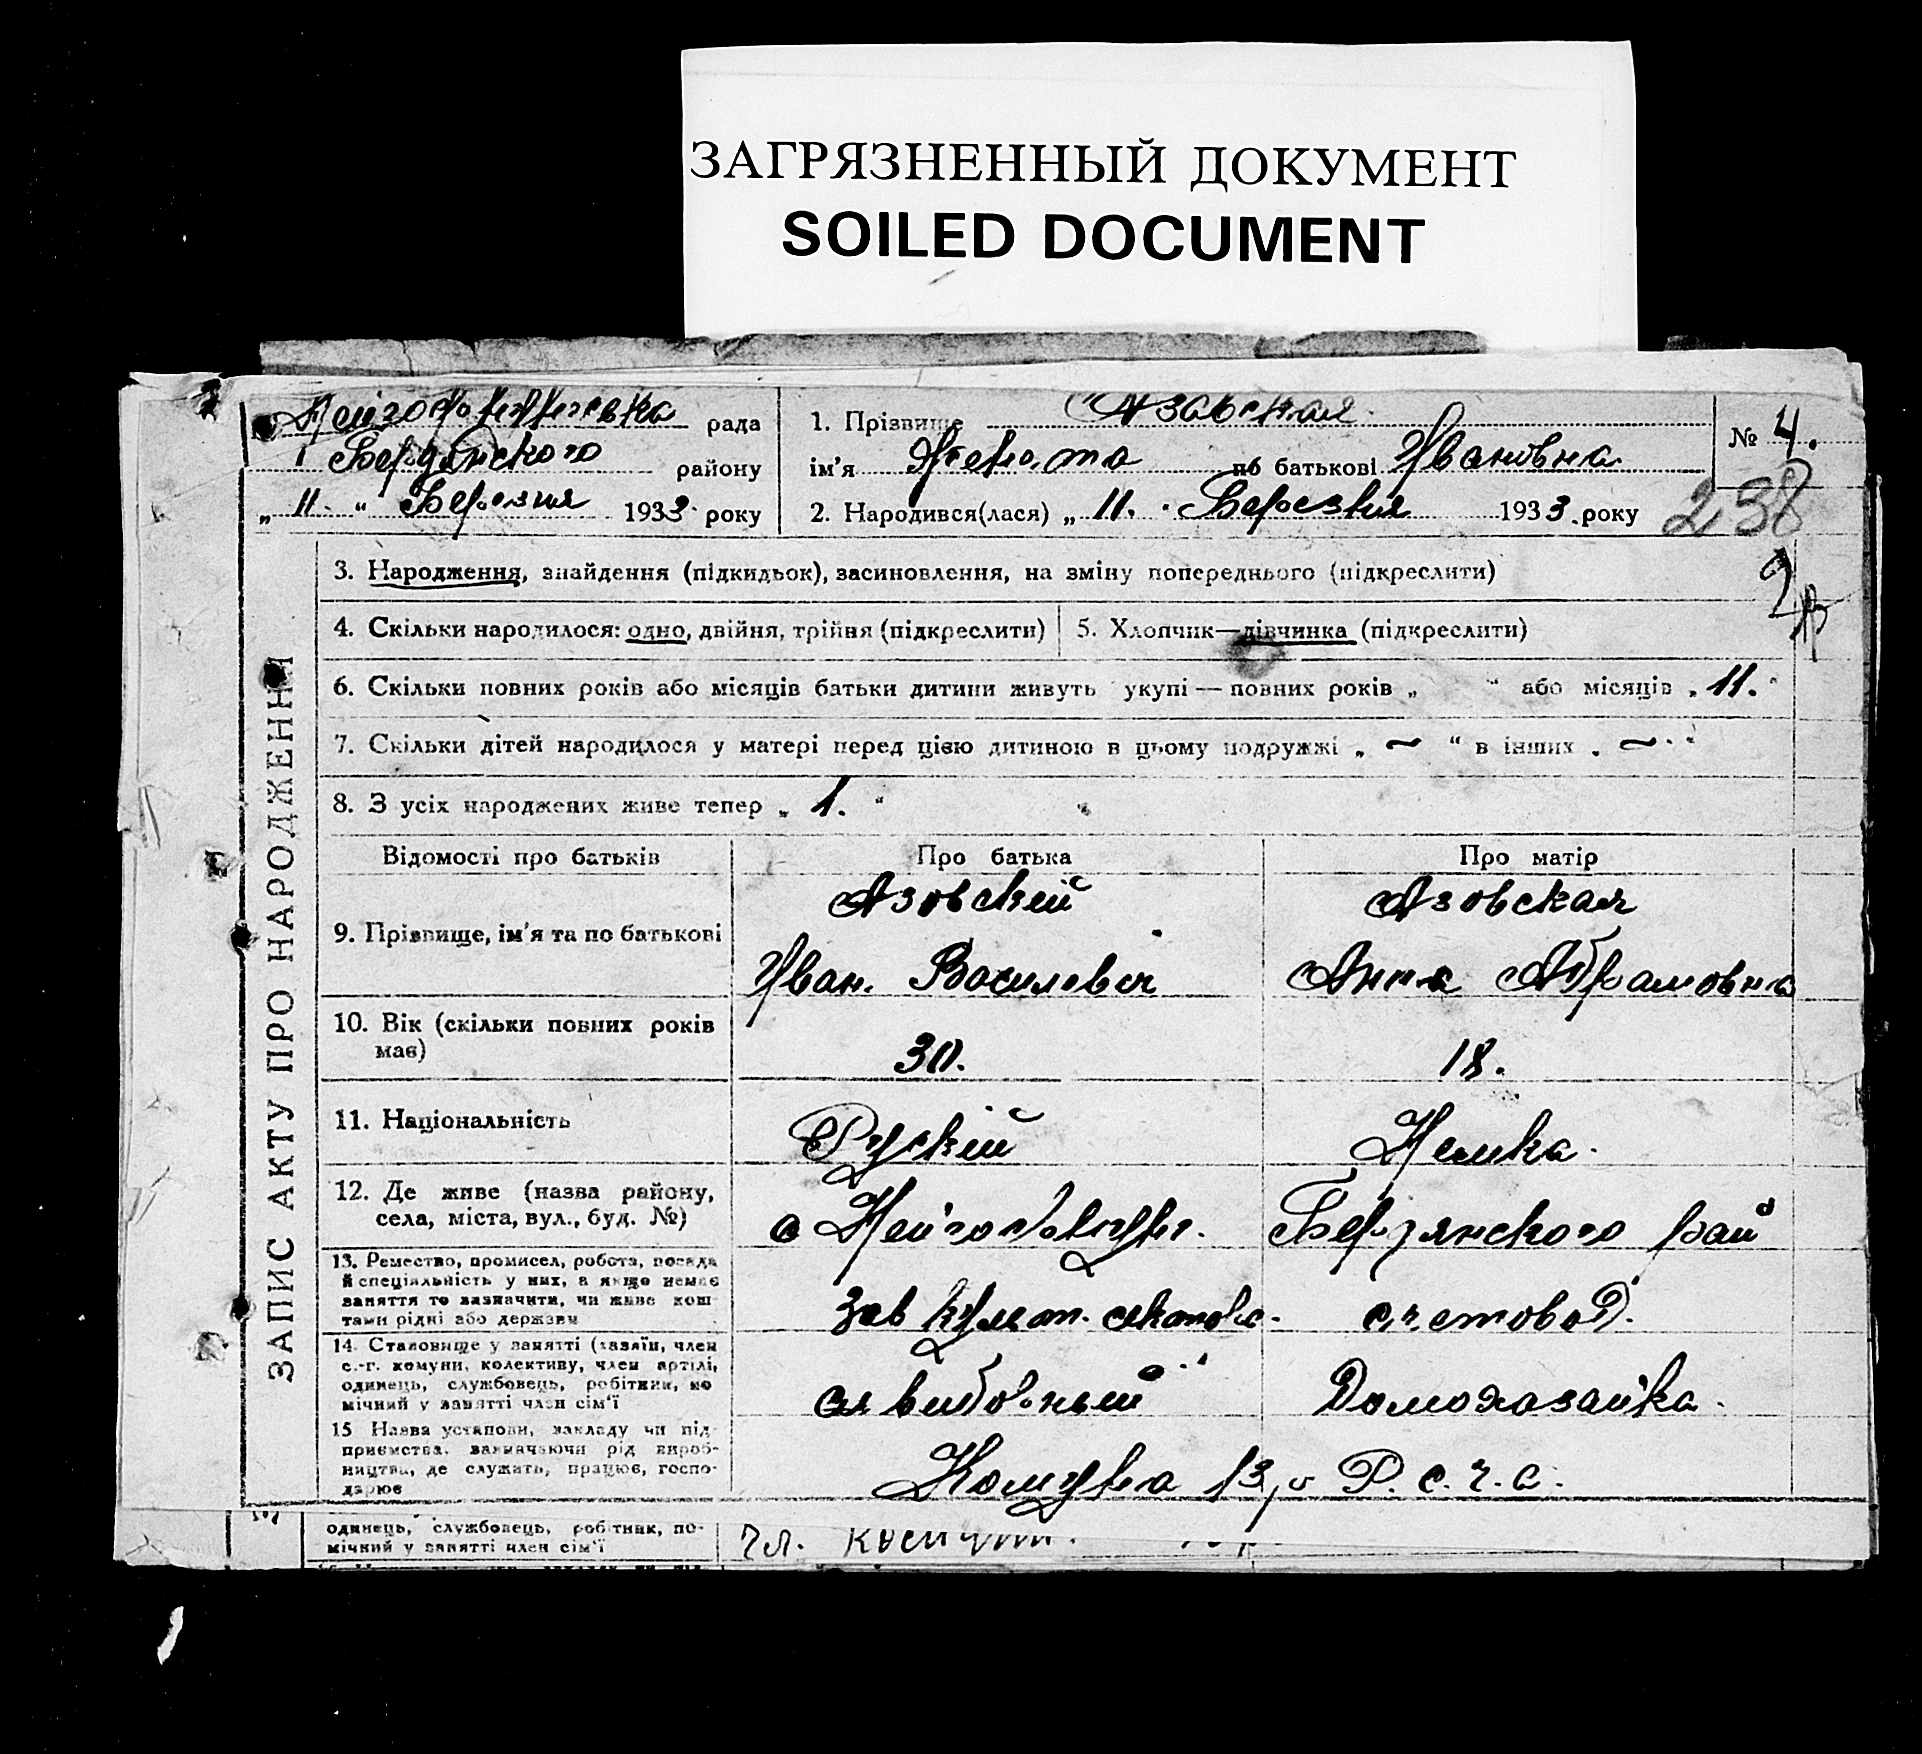 ЗАГРЯЗНЕННЫЙ ДОКУМЕНТ
SOILED DOCUMENT
рада
Бердянского району
„ 11. “ Березня 1933 року
1. Прізвище Азавская.
ім'я по батькові Ивановна
2. Народився(лася) „ 11. Березня 1933. року
№ 4.
238
ЗАПИС АКТУ ПРО НАРОДЖЕННЯ
3. Народження, знайдення (підкидьок), засиновлення, на зміну попереднього (підкреслити)
4. Скільки народилося: одно, двійня, трійня (підкреслити)
5. Хлопчик—дівчинка (підкреслити)
6. Скільки повних років або місяців батьки дитини живуть укупі — повних років „ “ або місяців „ 11. “
7. Скільки дітей народилося у матері перед цією дитиною в цьому подружжі „ ~ “ в інших „ ~ “
8. З усіх народжених живе тепер „ 1. “
Відомості про батьків
Про батька
Про матір
9. Прізвище, ім'я та по батькові
Азовский
Иван. Василевич
Азовская
Анна Абрамовна
10. Вік (скільки повних років
має)
30.
18.
11. Національність
Руский
Немка.
12. Де живе (назва району,
села, міста, вул., буд. №)
с
Бердянского рай
13. Ремество, промисел, робота, посада
й спеціяльність у них, а якщо немає
заняття то зазначити, чи живе кош-
тами рідні або держави
Зав культ.
счетовод.
14. Становище у занятті (хазяїн, член
с.-г. комуни, колективу, член артілі,
одинець, службовець, робітник, по
мічний у занятті член сім'ї
Домохазайка.
15 Назва установи, закладу чи під-
приємства, зазначаючи рід вироб-
ництва, де служить, працює, госпо-
дарює
Комуна 13, Р. с. ч. с.
одинець, службовець, робітник, по-
мічний у занятті член сім'ї
чл.